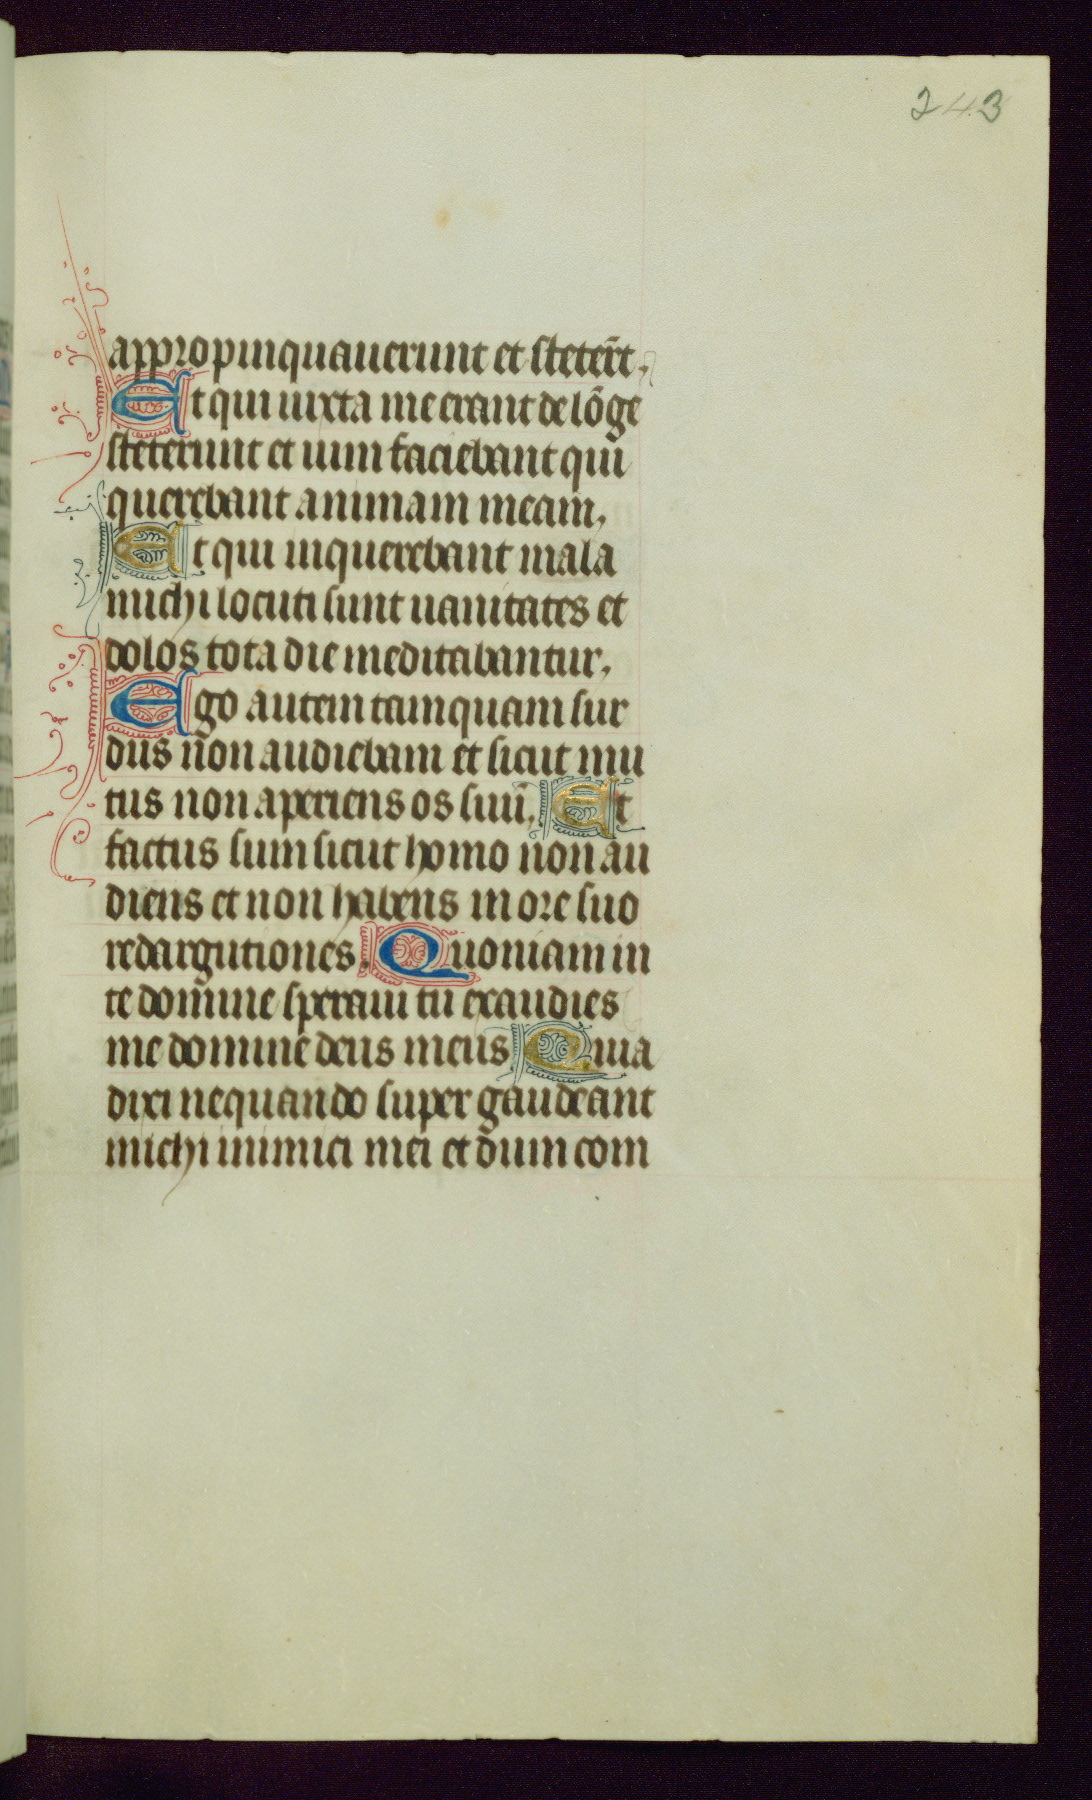 243
appropinquauerunt et stetert̄.
Et qui iuxta me erant de lōge
steterunt et uim faciebant qui
querebant animam meam,
Et qui inquerebant mala
michi locuti sunt uanitates et
dolos tota die meditabantur,
Ego autem tamquam sur
dus non audiebam et sicut mu
tus non aperiens os suū, Et
factus sum sicut homo non au
diens et non habens in ore suo
redargutiones. Quoniam in
te domine speraui tu exaudies
me domine deus meus Quia
dixi nequando super gaudeant
michi inimici mei et dum com